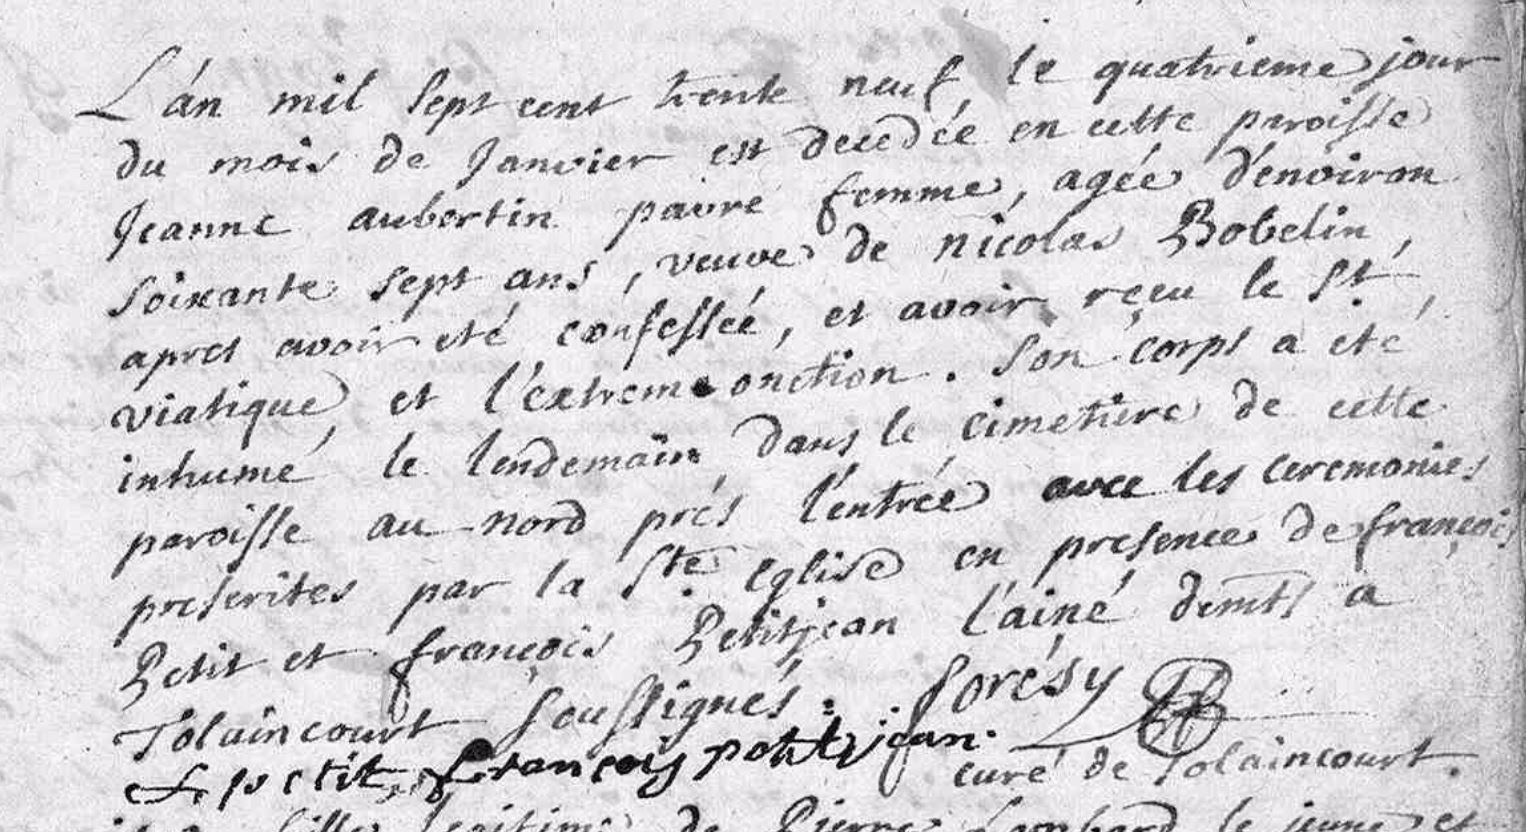 L'an mil sept cent trente neuf, le quatrieme jour
du mois de Janvier est decedée en cette paroisse
Jeanne aubertin pauvre femme, agée d'environ
soixante sept ans, veuve de nicolas Bobelin,
apres avoir eté confessée, et avoir reçeu le St.
viatique, et l'extreme onction. Son corps a eté
inhumé le lendemain dans le cimetiere de cette
paroisse au nord prés l'entrée avec les ceremonies
prescrites par la Ste. eglise en presence de françois
Petit et françois Petitjean l'ainé demts a
Tolaincourt soussignés. Sorésy
f petit, françois petit jean. curé de Tolaincourt.
fille legitime de Pierre Lambard le jeune et